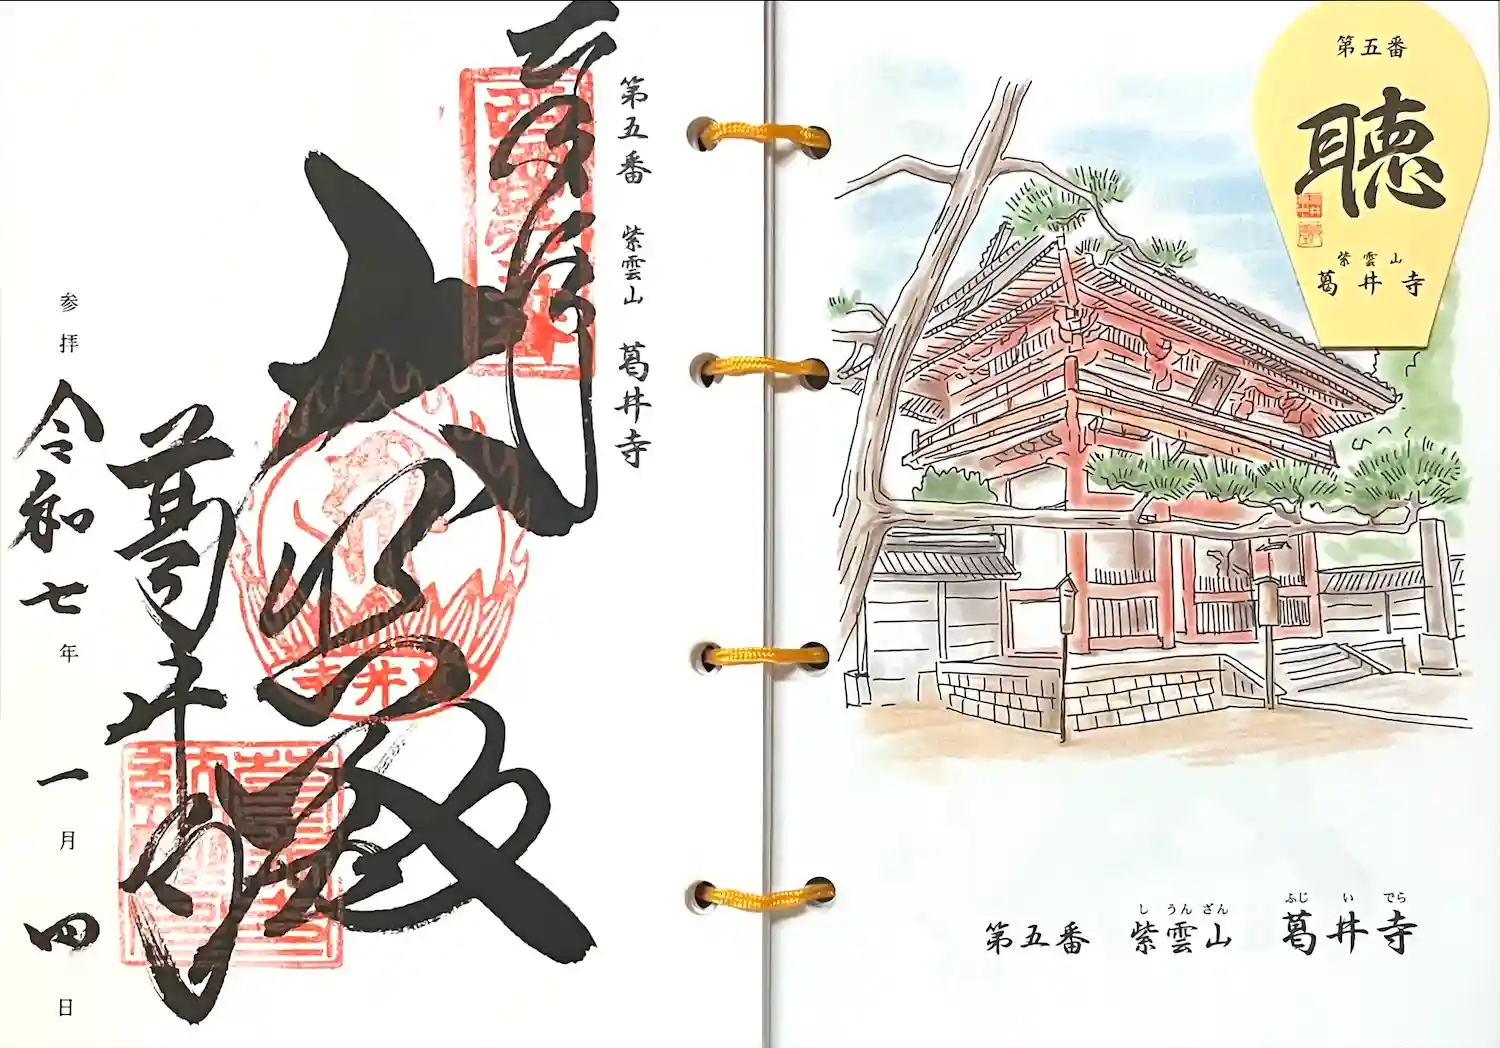 第五番　紫雲山　葛井寺
葛井寺
参拝 令和七年一月四日
第五番
聴
紫雲山
葛井寺
し うん ざん ふじ い でら
第五番 紫雲山 葛井寺